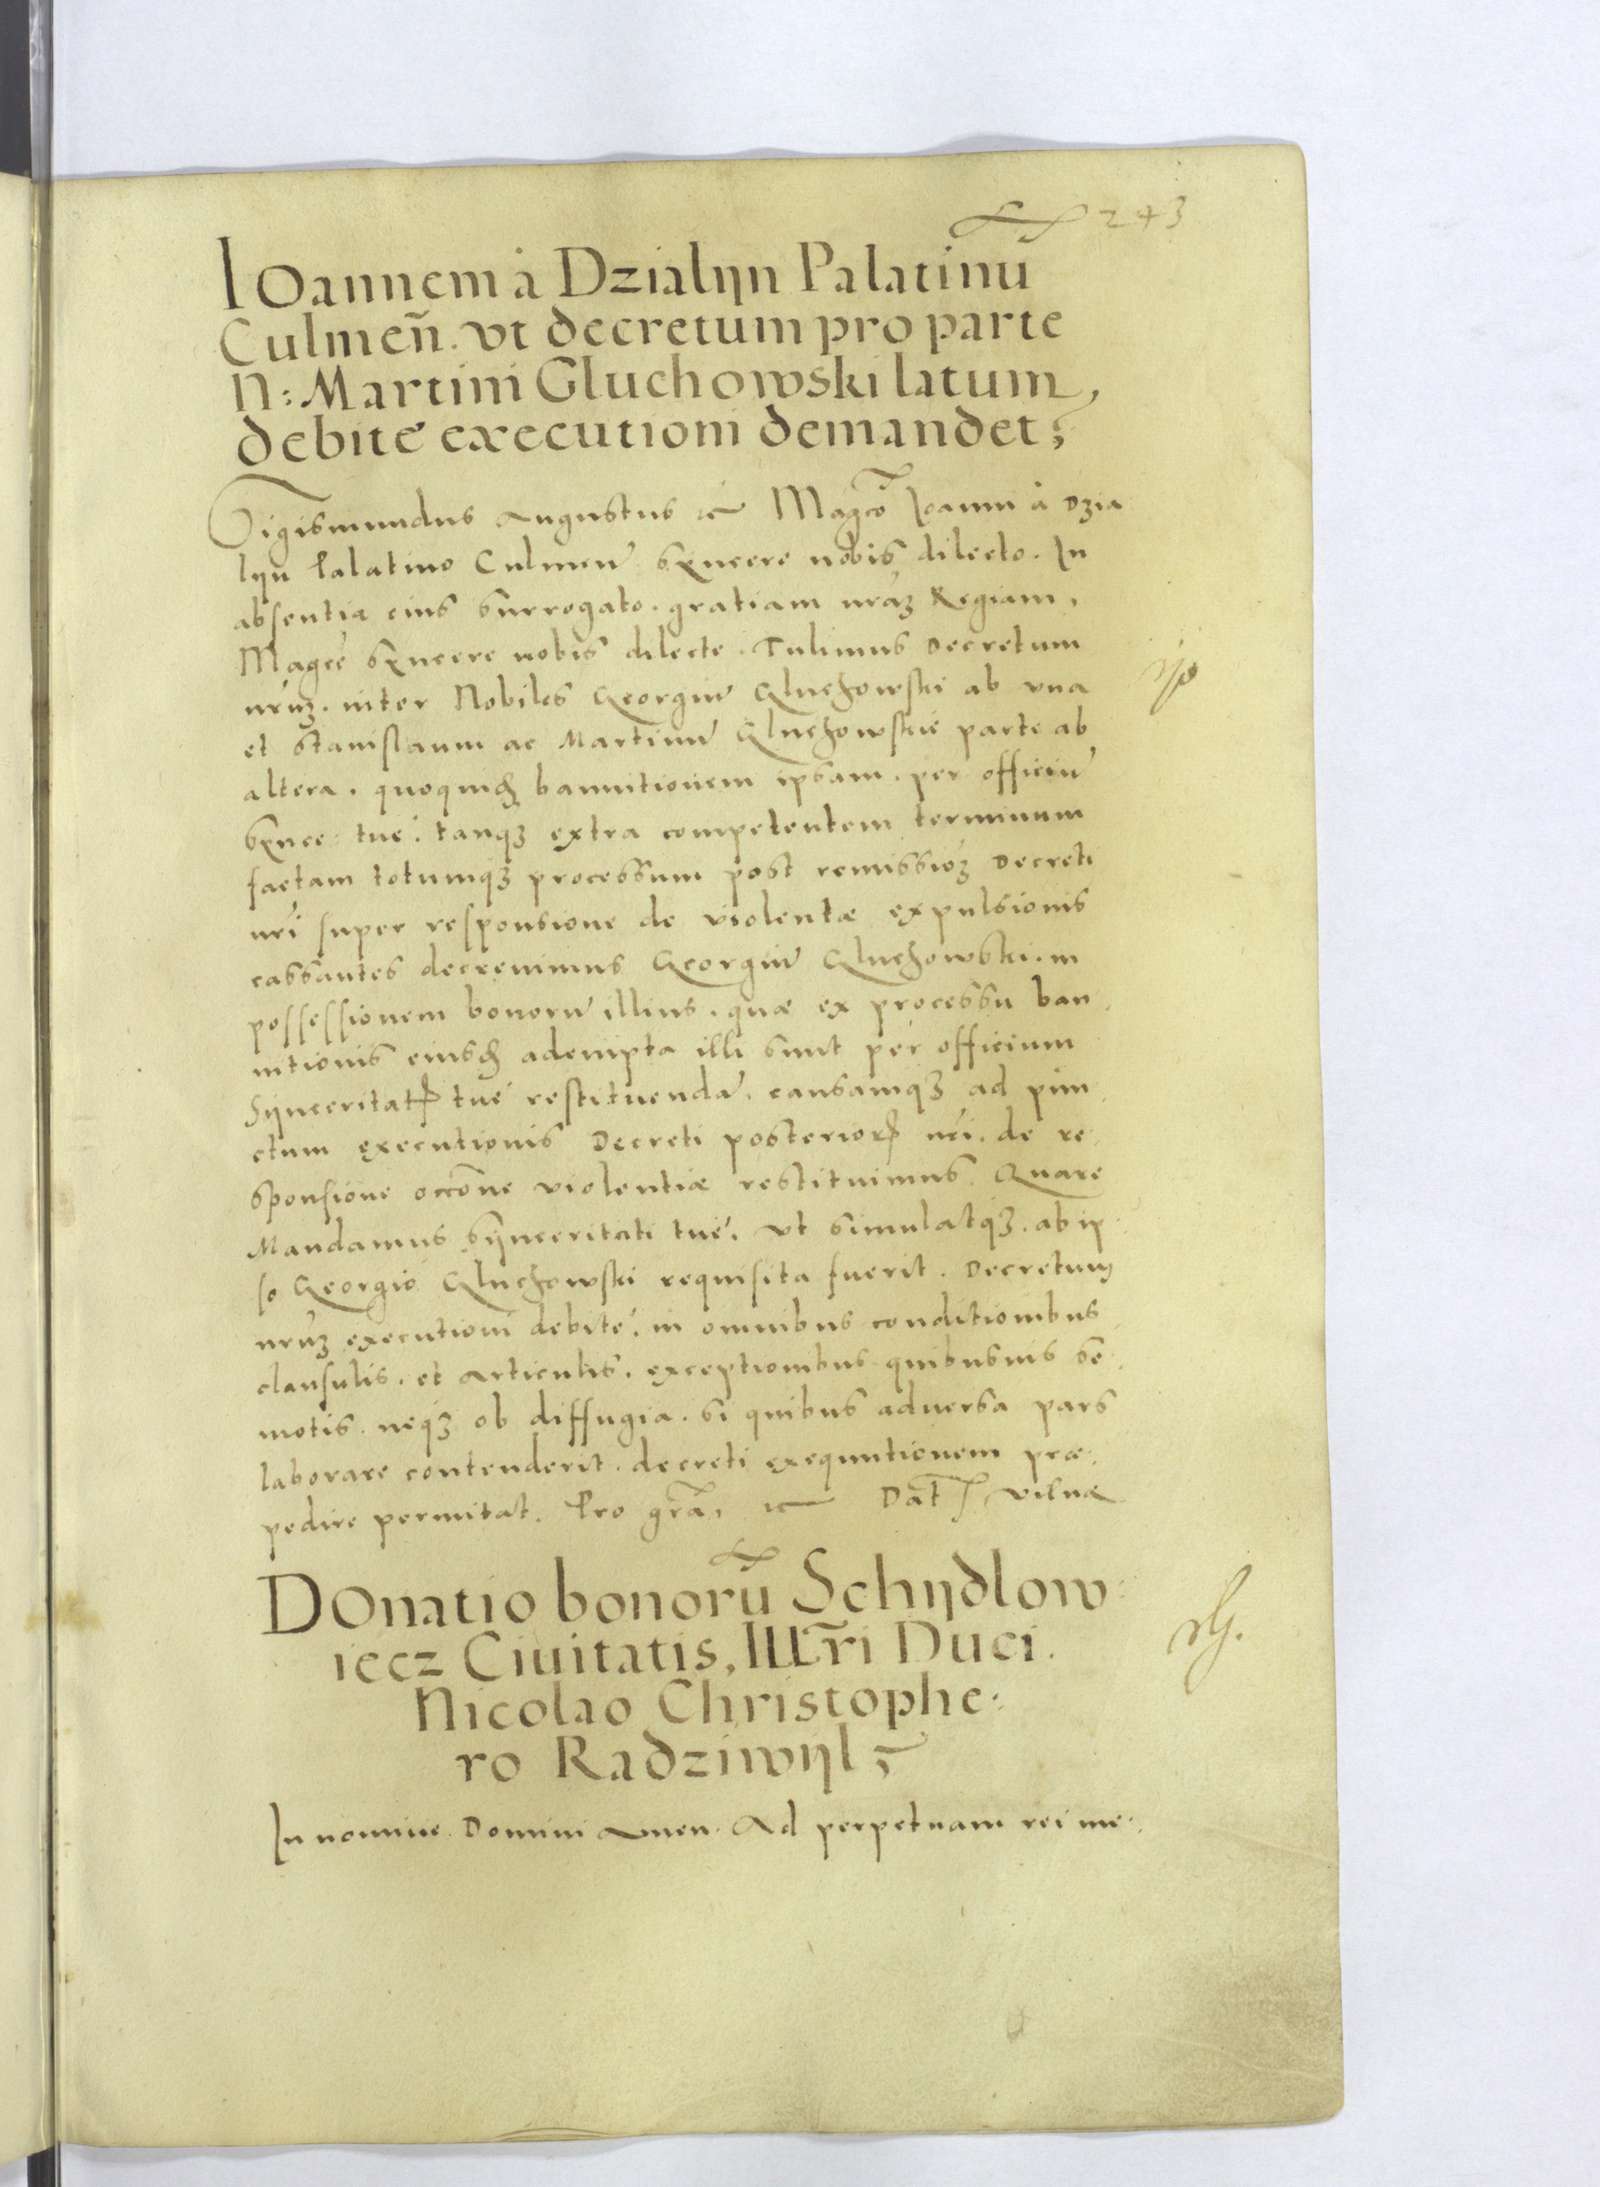 243
IOannem à Dzialijn Palatinū
Culmeñ. vt decretum pro parte
N: Martini Gluchowski latum,
debite executioni demandet;
Sigismundus Augustus etc Magco Ioanni à Dzia
lijn Palatino Culmen̄ syncere nobis dilecto. In
absentia eius surrogato. gratiam nrāʒ Regiam.
Magce syncere nobis dilecte. Tulimus Decretum
nrūʒ. inter Nobiles Georgiū Gluchowski ab vna
et Stanislaum ac Martinū Gluchowskie parte ab
altera. bannitionem ipsam. per officiū
tuę. tanqʒ extra competentem terminum
factam totumqʒ processum post remissioʒ Decreti
nrī super responsione de violentæ expulsionis
cassantes decrevimus Georgiū Gluchowski. in
possessionem bonorū illius. quæ ex processu ban
nitionis adempta illi sunt per officium
tuę restituendā. causamqʒ ad pun
ctum executionis Decreti nrī. de re
sponsione occōne violentiæ restituimus. Quare
Mandamus synceritati tuę. vt simulatqʒ. ab ip
so Georgio Gluchowski requisita fuerit. Decretum
nrūʒ executioni debitę. in omnibus conditionibus
clausulis. et articulis. exceptionibus quibusuis se
motis. neqʒ ob diffugia. si quibus adversa pars
laborare contenderit. decreti exequutionem præ
pedire permitat. Pro grā, etc Dat Vilnæ
DOnatio bonorū Schijdlow
iecz Ciuitatis, Illr̄i Duci.
Nicolao Christophe
ro Radziwijl;
In nomine Domini Amen. Ad perpetuam rei me